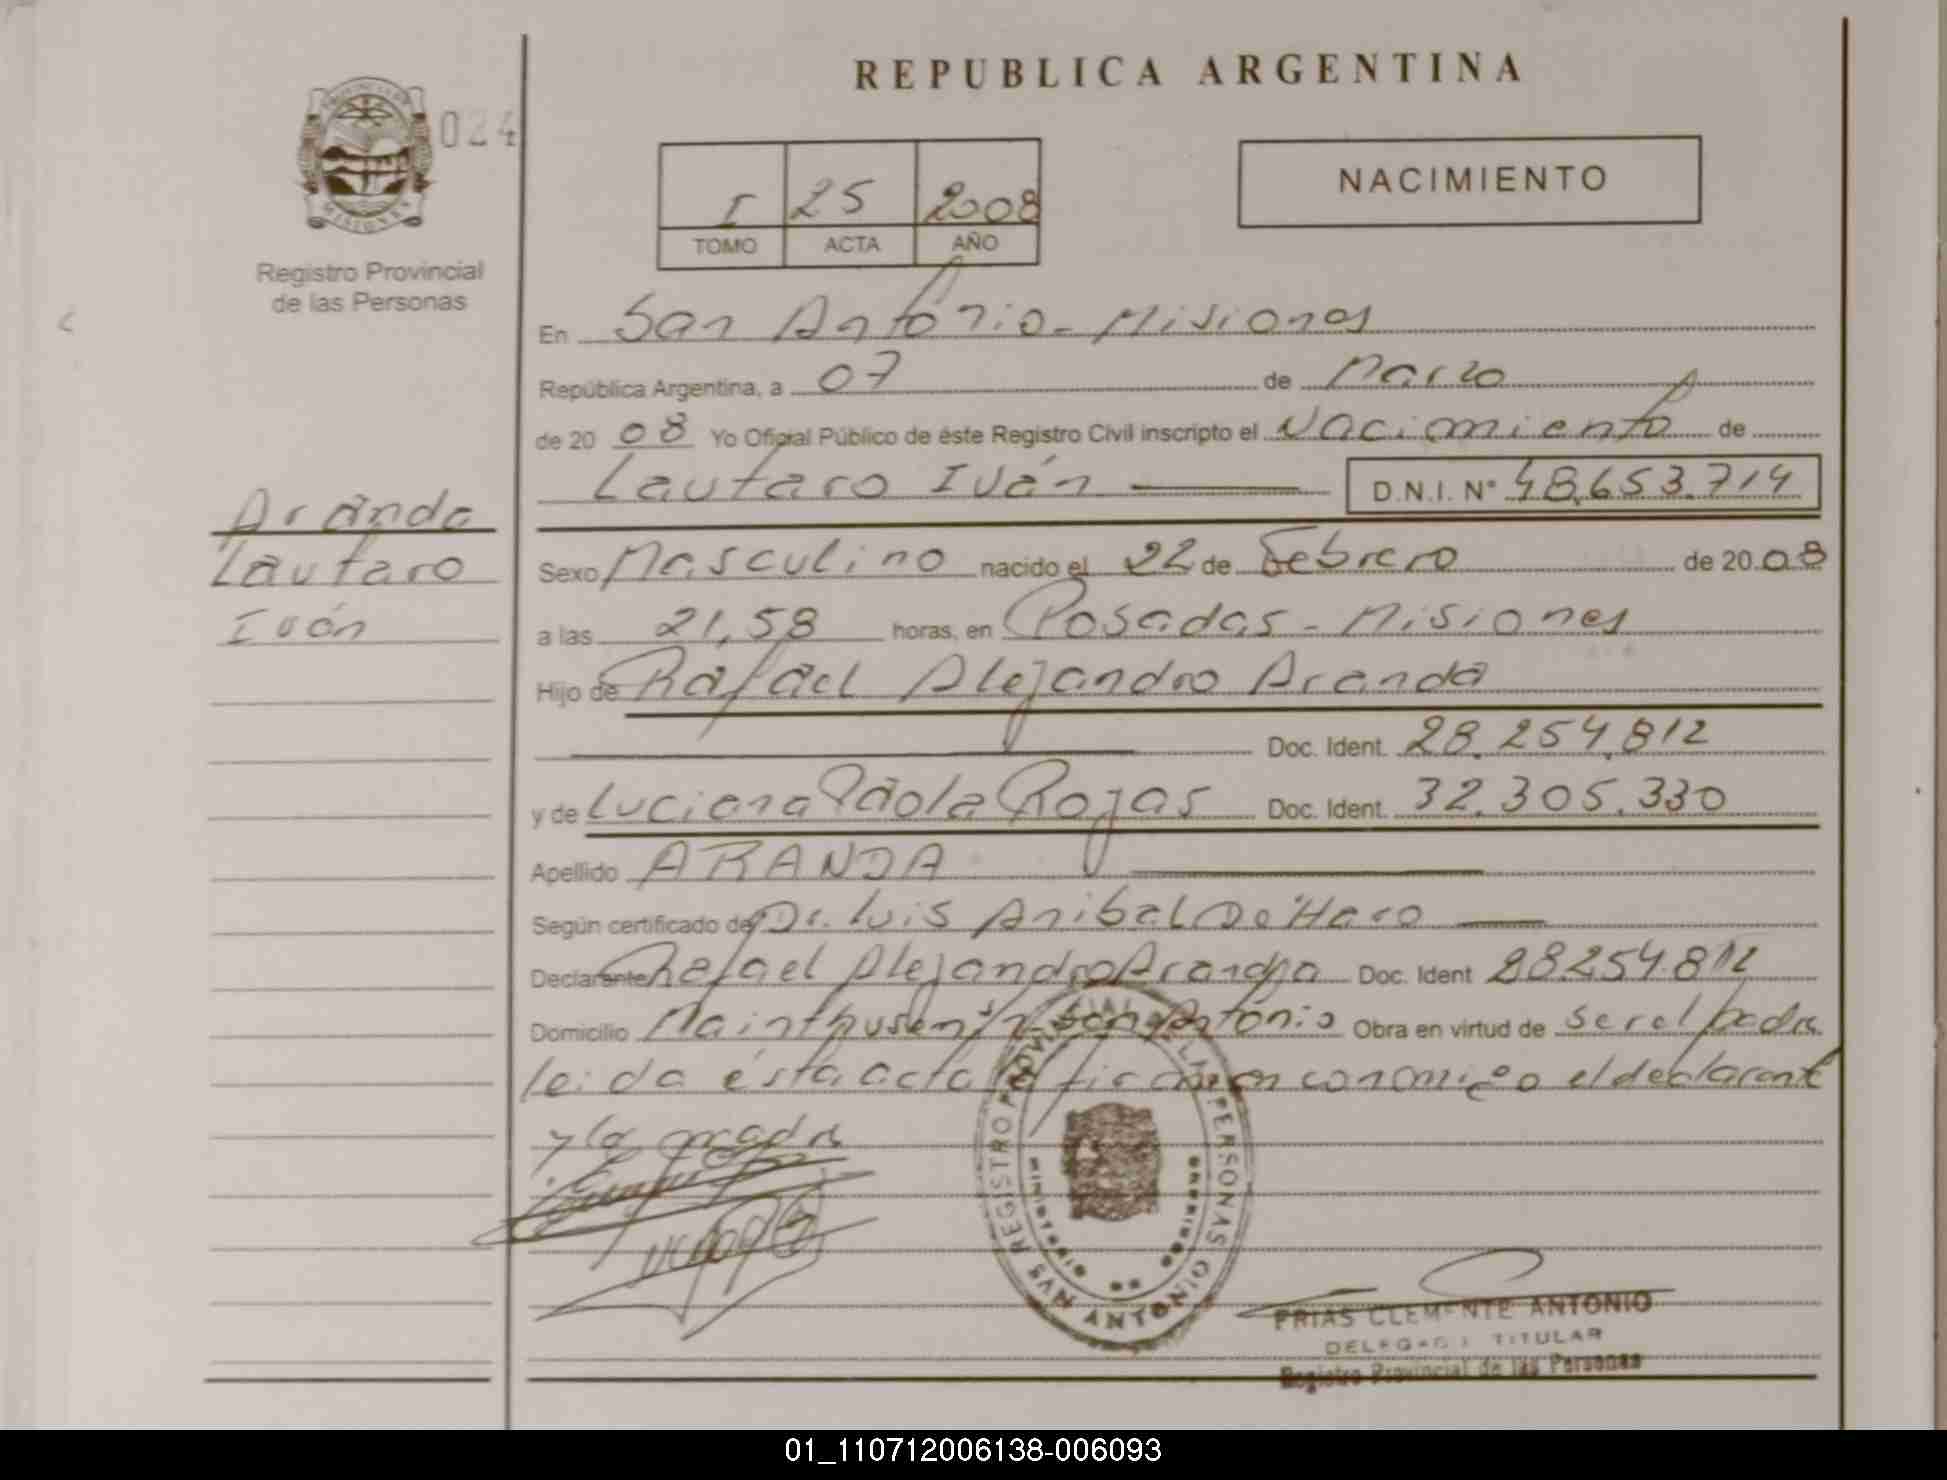 REPUBLICA ARGENTINA
024
I 25 2008
TOMO ACTA AÑO
NACIMIENTO
Registro Provincial
de las Personas
En San Antonio - Misiones
República Argentina, a 07 de Marzo
de 20 08 Yo Oficial Público de éste Registro Civil inscripto el Nacimiento de
Lautaro Iván D.N.I. Nº 48.653.714
Aranda
Lautaro
Iván
Sexo Masculino nacido el 22 de Febrero de 20 08
a las 21,58 horas, en Posadas - Misiones
Hijo de Rafael Alejandro Aranda
Doc. Ident. 28.254.812
y de Luciana Paola Rojas Doc. Ident. 32.305.330
Apellido ARANDA
Según certificado de Dr. Luis Anibal De Haro
Declarante Rafael Alejandro Aranda Doc. Ident 28.254.812
Domicilio San Antonio Obra en virtud de ser el padre
leida ésta acta firman conmigo el declarante
y la madre
REGISTRO PROVINCIAL DE LAS PERSONAS
MINISTERIO
SAN ANTONIO
FRIAS CLEMENTE ANTONIO
DELEGADO TITULAR
Registro Provincial de las Personas
01_110712006138-006093